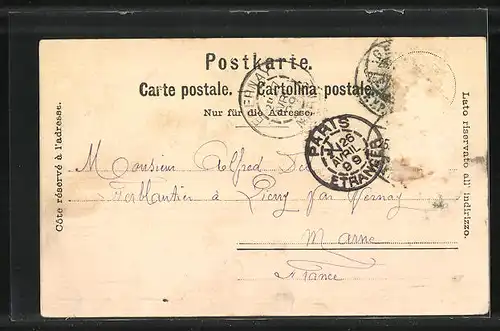 Postkarte.
Carte postale. Cartolina postale.
Nur für die Adresse.
Côte réservé à l'adresse.
Lato riservato all' indirizzo.
EPERNAY
PARIS
26
AVRIL
99
ETRANGER
Monsieur Alfred
Ferblantier à Pierry par Epernay
Marne
France